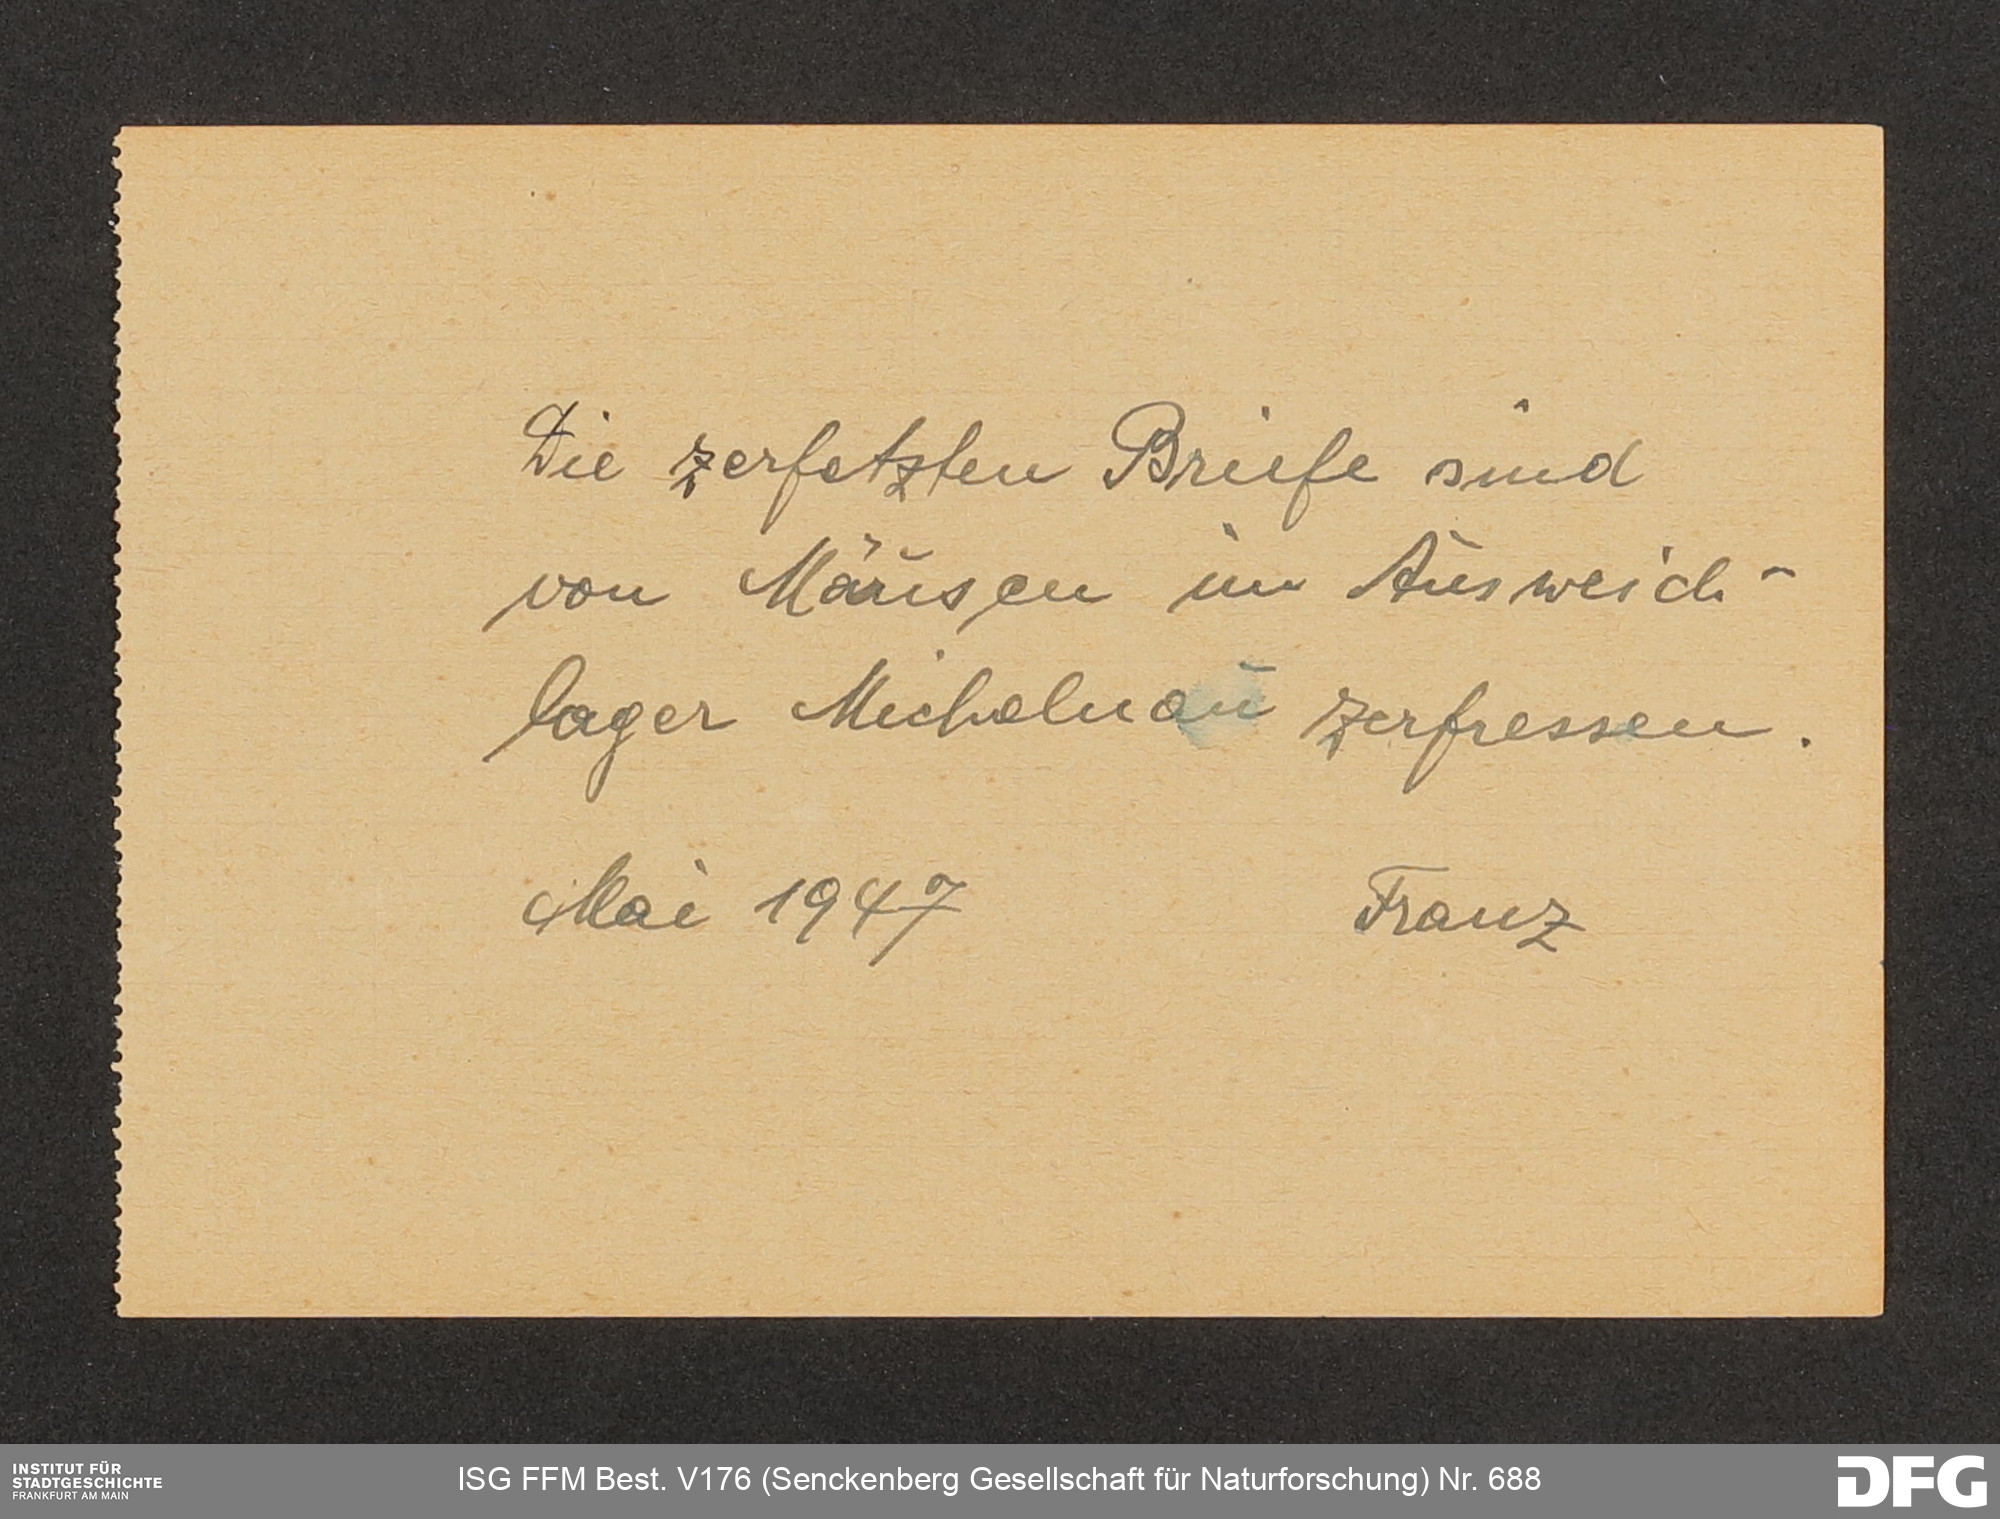 Die zerfetzten Briefe sind
von Mäusen im Ausweich-
lager Michelnau zerfressen.
Mai 1947 Franz
INSTITUT FÜR
STADTGESCHICHTE
FRANKFURT AM MAIN
ISG FFM Best. V176 (Senckenberg Gesellschaft für Naturforschung) Nr. 688
DFG